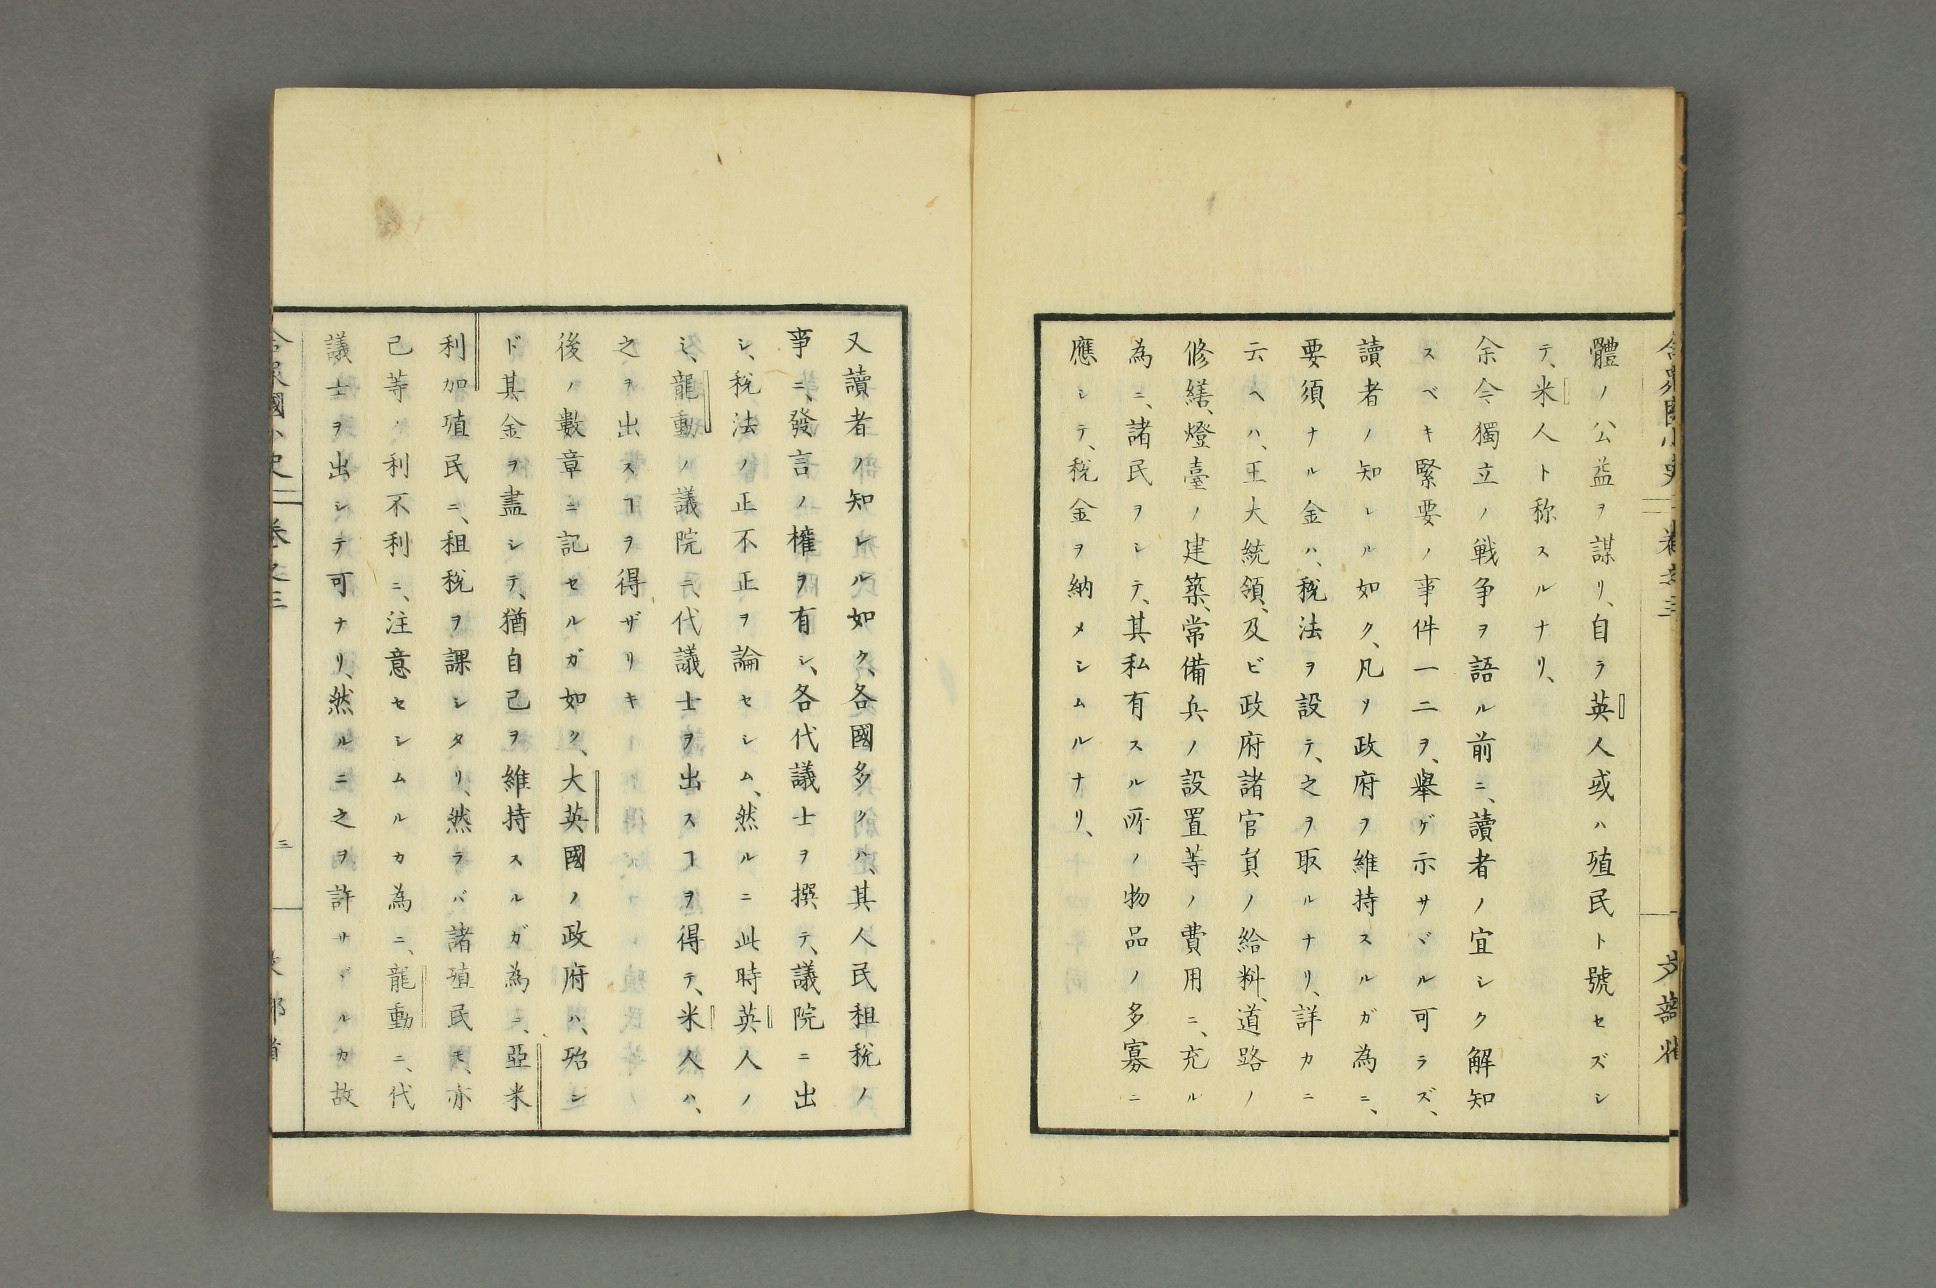 體ノ公益ヲ謀リ、自ラ英人或ハ殖民ト號セズシ
テ、米人ト称スルナリ、
余今獨立ノ戦争ヲ語ル前ニ、讀者ノ宜シク解知
スベキ緊要ノ事件一二ヲ、舉ゲ示サヾル可ラズ、
讀者ノ知レル如ク、凡ソ政府ヲ維持スルガ為ニ、
要須ナル金ハ、税法ヲ設テ、之ヲ取ルナリ、詳カニ
云ヘハ、王大統領、及ビ政府諸官負ノ給料、道路ノ
修繕、燈臺ノ建築、常備兵ノ設置等ノ費用ニ、充ル
為ニ、諸民ヲシテ、其私有スル所ノ物品ノ多寡ニ
應シテ、税金ヲ納メシムルナリ、
又讀者ノ知レル如ク、各國多クハ、其人民租税ノ
事ニ、發言ノ權ヲ有シ、各代議士ヲ撰テ、議院ニ出
シ、税法ノ正不正ヲ論セシム、然ルニ此時英人ノ
ミ、龍動ノ議院ニ代議士ヲ出スヿヲ得テ、米人ハ、
之ヲ出スヿヲ得ザリキ
後ノ數章ニ記セルガ如ク、大英國ノ政府ハ、殆ン
ド其金ヲ盡シテ、猶自己ヲ維持スルガ為ニ、亞米
利加殖民ニ、租税ヲ課シタリ、然ラバ諸殖民モ、亦
己等ノ利不利ニ、注意セシムルカ為ニ、龍動ニ、代
議士ヲ出シテ可ナリ、然ルニ之ヲ許サヾルカ故
合衆國小史 卷之三
三
文部省